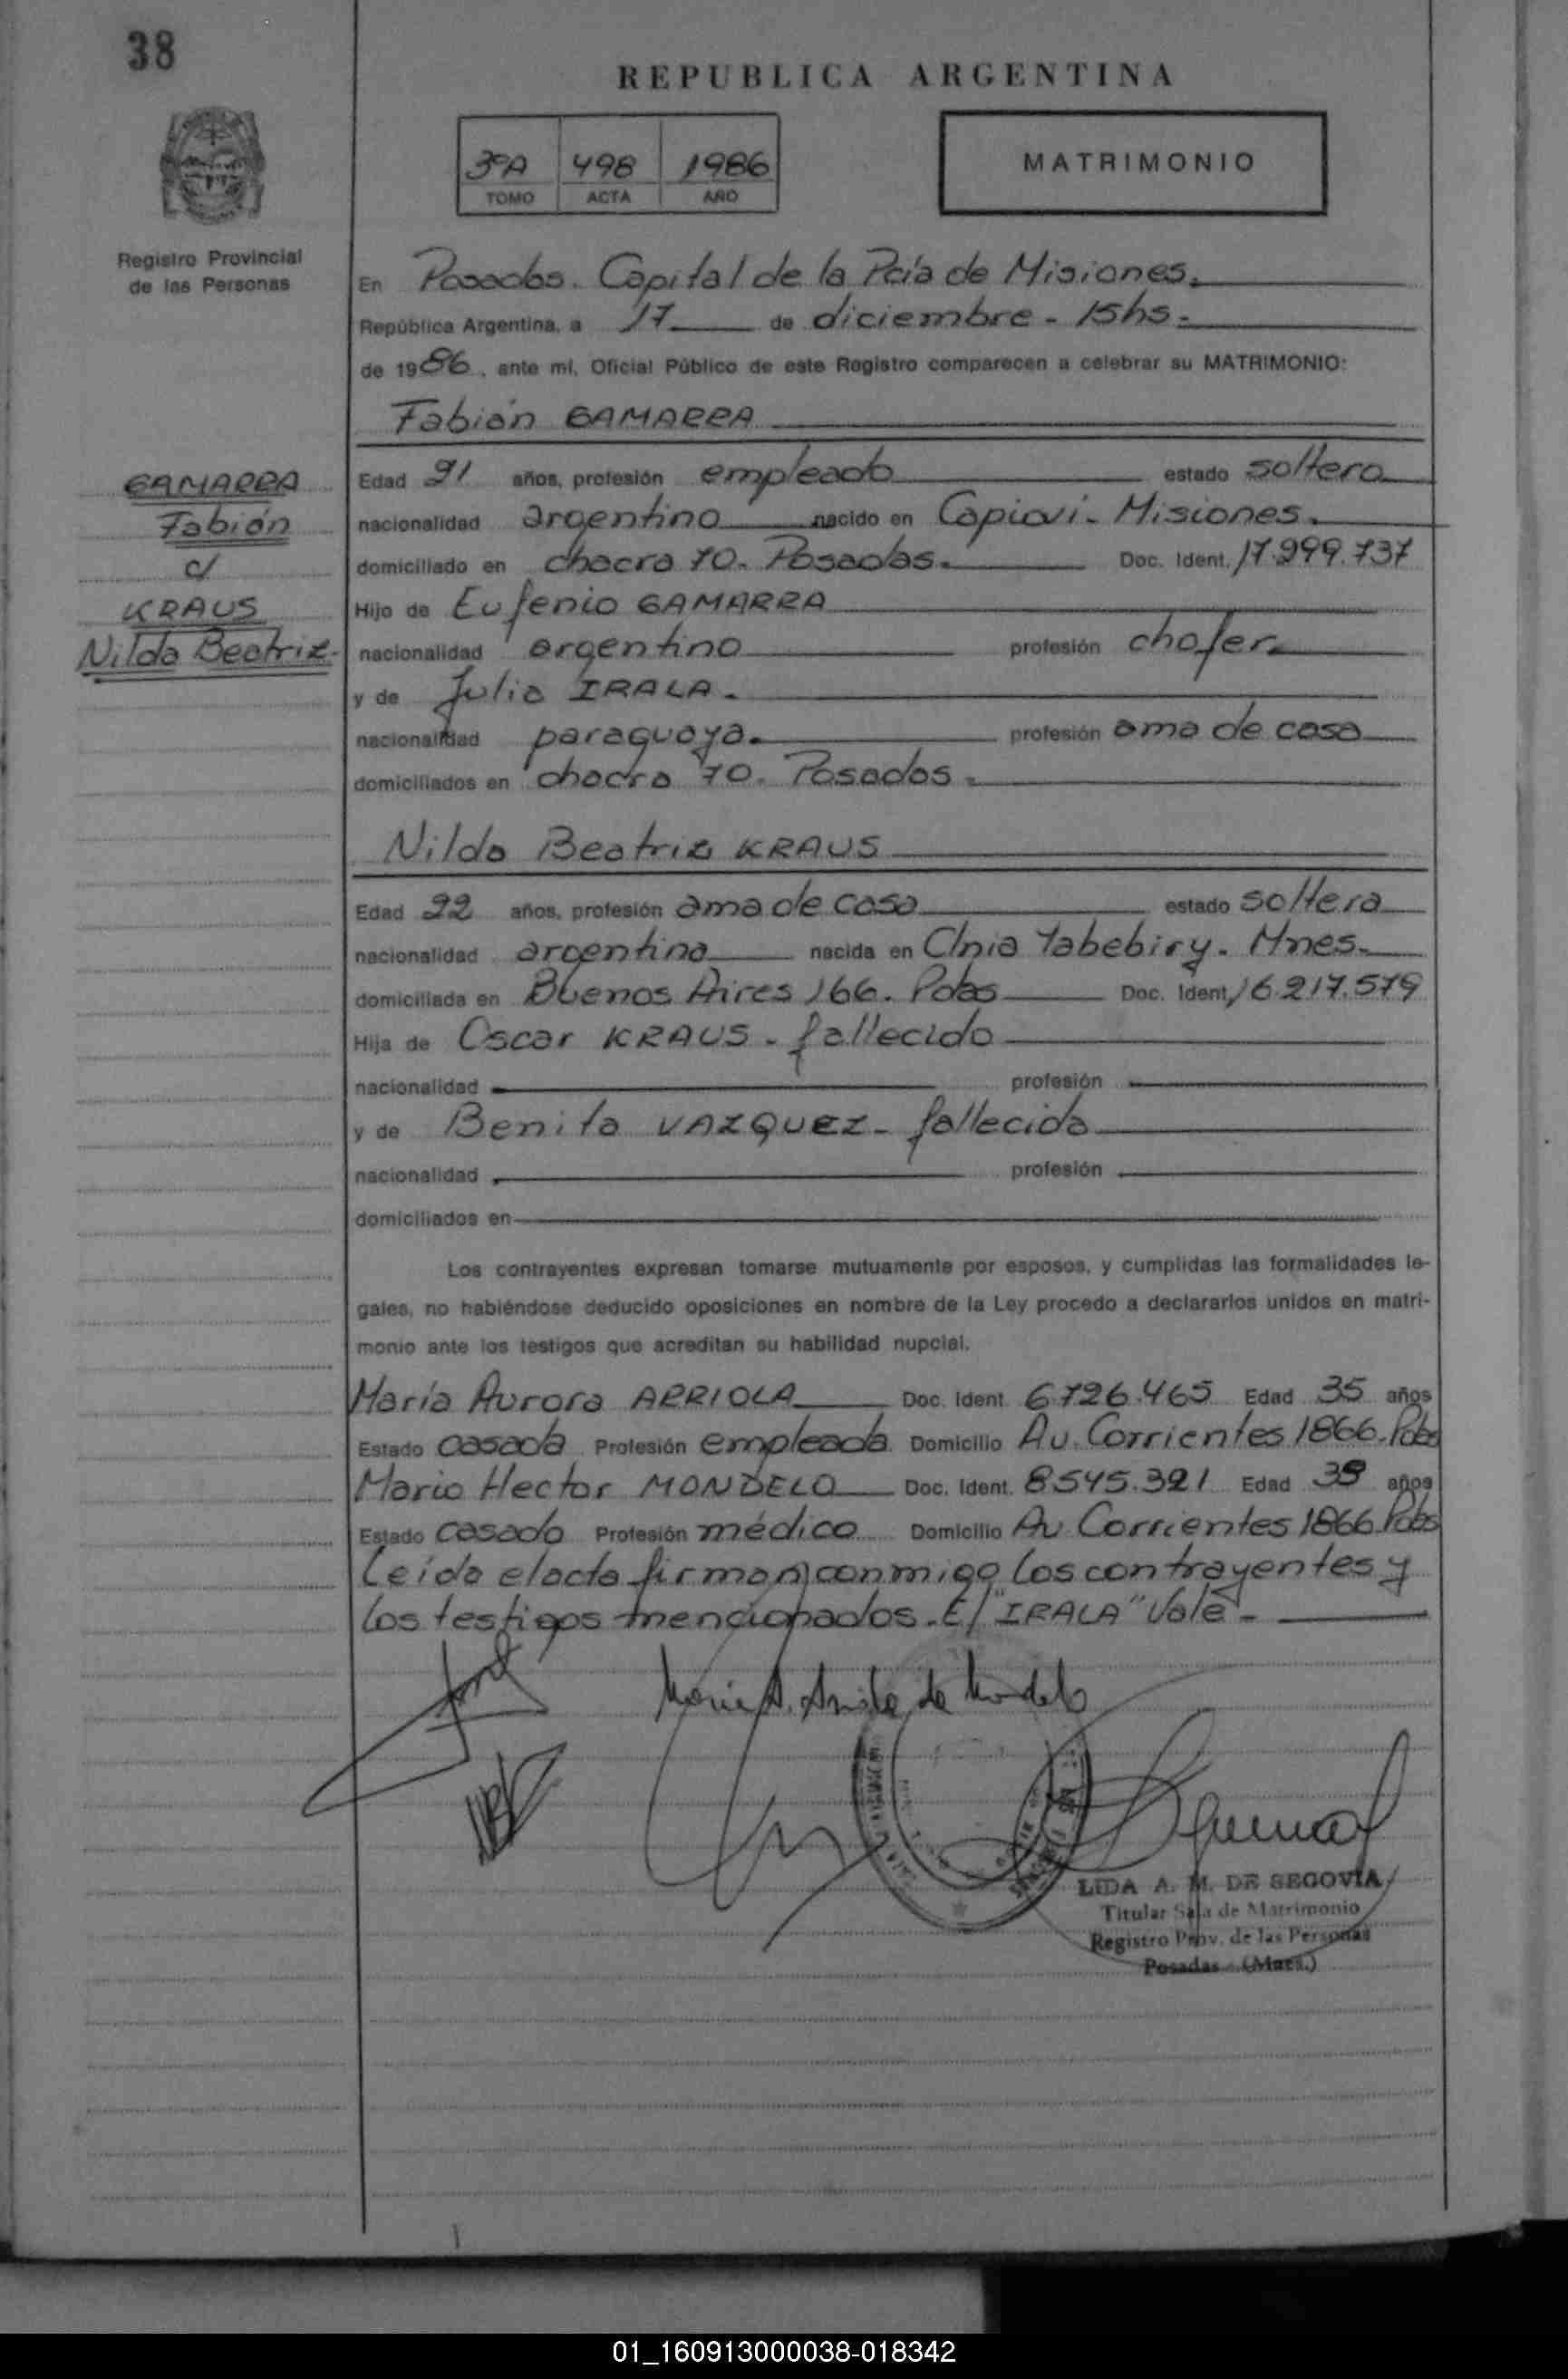 38
REPUBLICA ARGENTINA
3ºA 498 1986
TOMO ACTA AÑO
MATRIMONIO
Registro Provincial
de las Personas
En Posadas. Capital de la Pcia de Misiones.
República Argentina, a 17 de diciembre - 15hs -
de 1986, ante mí, Oficial Público de este Registro comparecen a celebrar su MATRIMONIO:
Fabián GAMARRA
GAMARRA
Fabián
c/
KRAUS
Nilda Beatriz.
Edad 21 años, profesión empleado estado soltero
nacionalidad argentino nacido en Capioví - Misiones.
domiciliado en chacra 70. Posadas. Doc. Ident. 17.999.737
Hijo de Eufenio GAMARRA
nacionalidad argentino profesión chofer.
y de Julia IRALA.
nacionalidad paraguaya. profesión ama de casa
domiciliados en chacra 70. Posadas.
Nilda Beatriz KRAUS
Edad 22 años, profesión ama de casa estado soltera
nacionalidad argentina nacida en Clnia Yabebiry. Mnes.
domiciliada en Buenos Aires 166. Pdas Doc. Ident. 16.217.579
Hija de Oscar KRAUS - fallecido
nacionalidad profesión
y de Benita VAZQUEZ - fallecida
nacionalidad profesión
domiciliados en
Los contrayentes expresan tomarse mutuamente por esposos, y cumplidas las formalidades le-
gales, no habiéndose deducido oposiciones en nombre de la Ley procedo a declararlos unidos en matri-
monio ante los testigos que acreditan su habilidad nupcial.
María Aurora ARRIOLA Doc. Ident. 6726.465 Edad 35 años
Estado casada Profesión empleada Domicilio Av. Corrientes 1866. Pdas
Mario Hector MONDELO Doc. Ident. 8545.321 Edad 35 años
Estado casado Profesión médico Domicilio Av Corrientes 1866 Pdas
Leída el acta firman conmigo los contrayentes y
los testigos mencionados. E/ "IRALA" Vale -
María A. Arriola de Mondelo
LIDA A. M. DE SEGOVIA
Titular Sala de Matrimonio
Registro Prov. de las Personas
Posadas - (Mnes.)
01_160913000038-018342